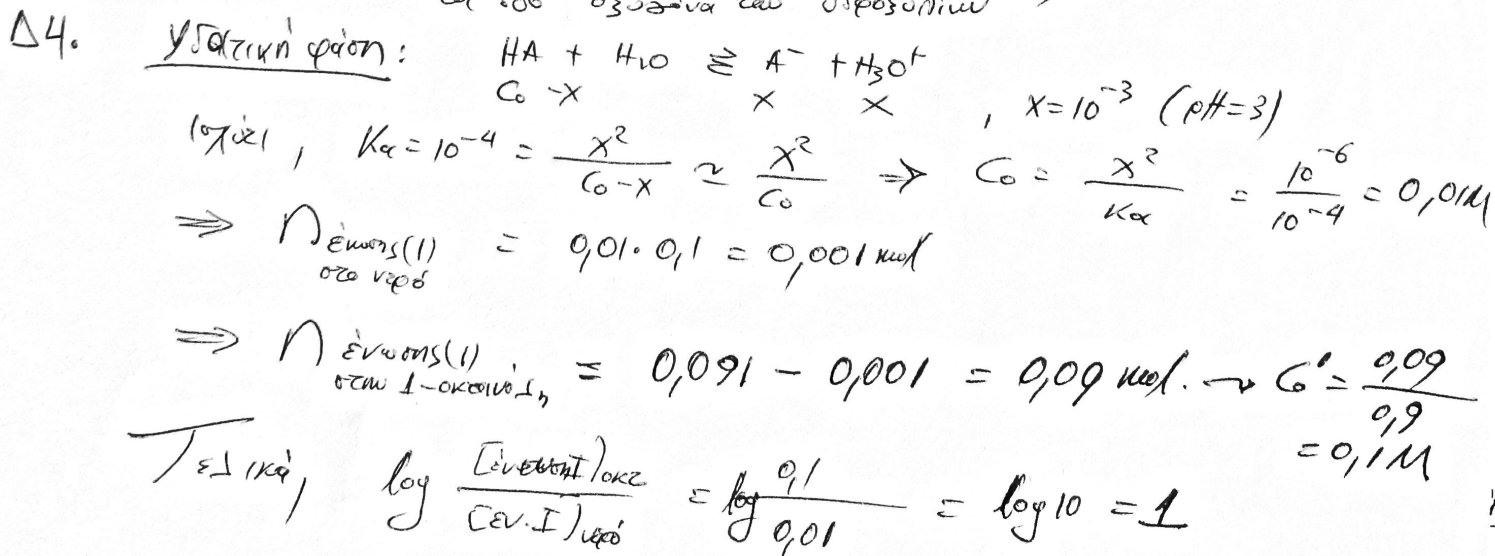 και του οξυγόνου του υδροξυλίου
Δ4. Υδατική φάση: HA + H₂O ⇄ A⁻ + H₃O⁺
C₀ -x x x , x = 10⁻³ (pH=3)
Ισχύει, Kα = 10⁻⁴ = x² / (C₀-x) ≃ x² / C₀ ⇒ C₀ = x² / Kα = 10⁻⁶ / 10⁻⁴ = 0,01M
⇒ n ένωσης(1) στο νερό = 0,01 · 0,1 = 0,001 mol
⇒ n ένωσης(1) στην 1-οκτανόλη = 0,091 - 0,001 = 0,09 mol. → C₀' = 0,09 / 0,9
= 0,1M
Τελικά, log [ένωση I]οκτ / [εν. I]νερό = log 0,1 / 0,01 = log 10 = 1